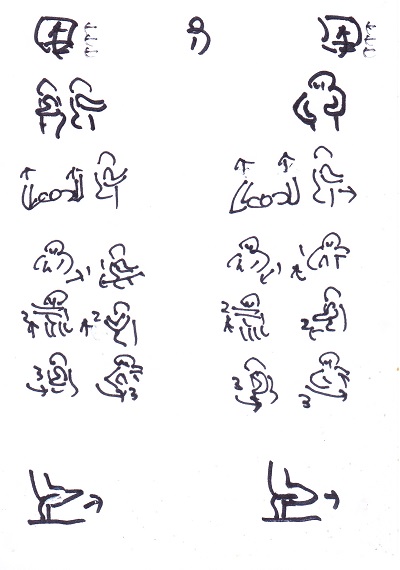 1 1 1 1
2 2 2 2
3 3 3 3